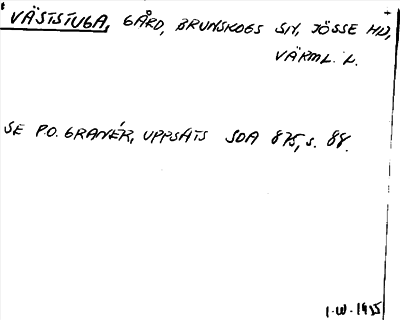 VÄSTSTUGA, GÅRD, BRUNSKOGS SN, JÖSSE HD,
VÄRML. L.
SE P.O. GRANÉR, UPPSATS SOA 875, S. 88.
I.W. 1955